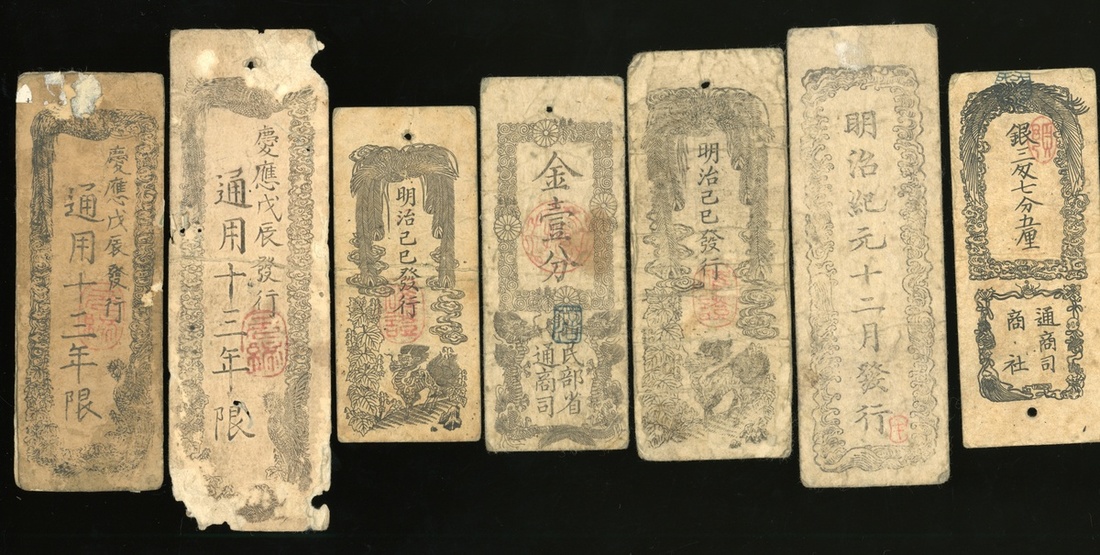 慶應戊辰發行
通用十三年限
慶應戊辰發行
通用十三年限
明治己巳發行
金壹分
民部省
通商司
明治己巳發行
明治紀元十二月發行
銀三匁七分五厘
通商司
商社